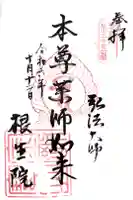 奉拝
弘法大師
本尊薬師如来
令和六年
十月十二日
根生院